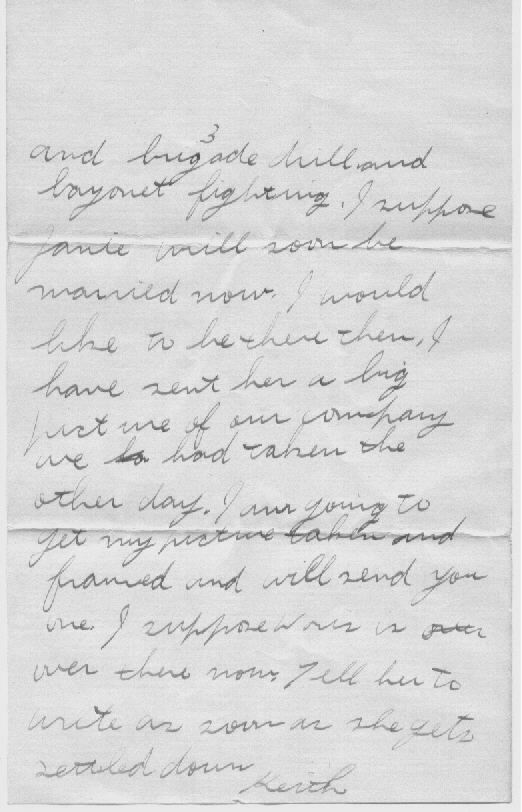 3
and brigade drill and
bayonet fighting. I suppose
Janie will soon be
married now. I would
like to be there then. I
have sent her a big
picture of our company
we had taken the
other day. I am going to
get my picture taken and
framed and will send you
one. I suppose is
over there now. Tell her to
write as soon as she gets
settled down
Keith